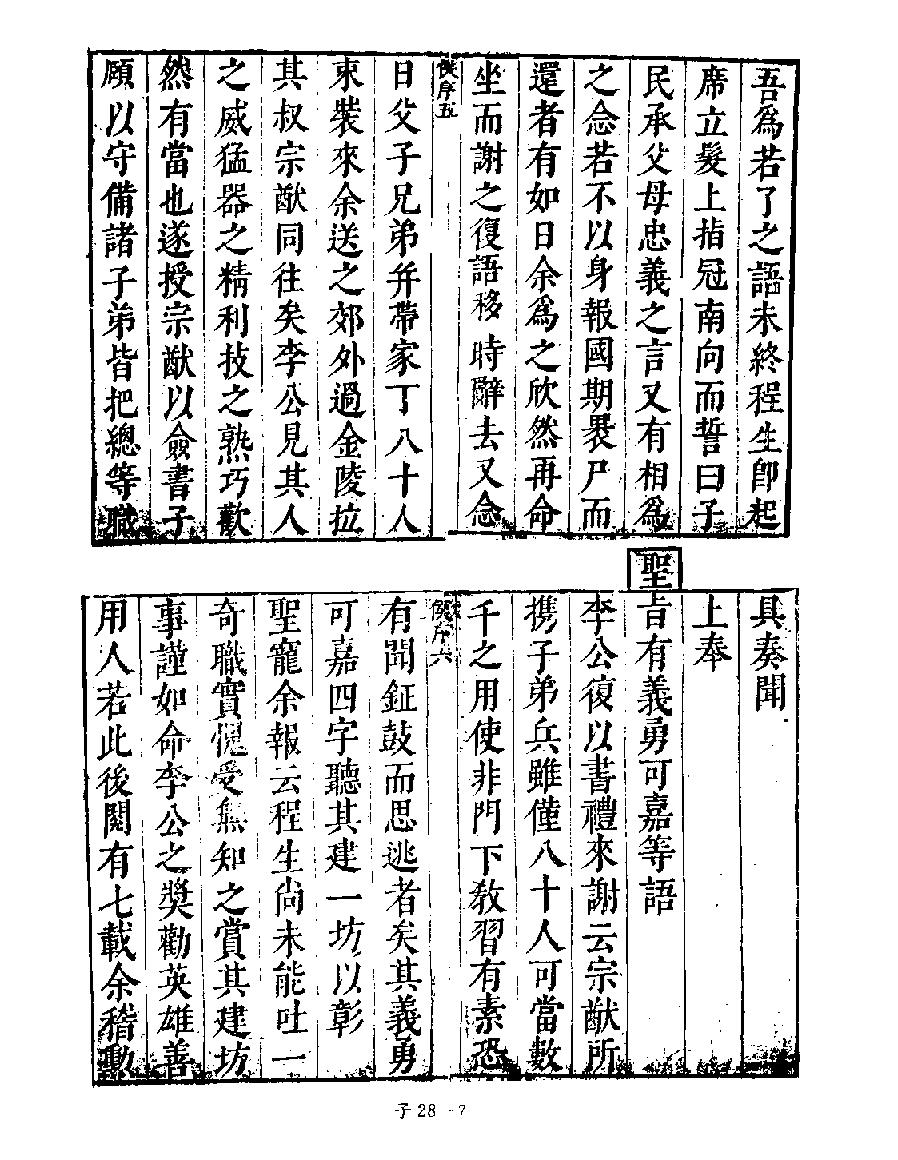 吾爲若了之語未終程生卽起
席立髮上指冠南向而誓曰子
民承父母忠義之言又有相爲
之念若不以身報國期褁尸而
還者有如日余爲之欣然再命
坐而謝之復語移時辭去又念
後序五
日父子兄弟幷帶家丁八十人
束裝來余送之郊外過金陵拉
其叔宗猷同往矣李公見其人
之威猛器之精利技之熟巧歡
然有當也遂授宗猷以僉書子
頤以守備諸子弟皆把總等職
具奏聞
上奉
聖旨有義勇可嘉等語
李公復以書禮來謝云宗猷所
携子弟兵雖僅八十人可當數
千之用使非門下敎習有素恐
後序六
有聞鉦鼓而思逃者矣其義勇
可嘉四字聽其建一坊以彰
聖寵余報云程生尚未能吐一
奇職實愧受無知之賞其建坊
事謹如命李公之獎勸英雄善
用人若此後閱有七載余稽勳
子28-7